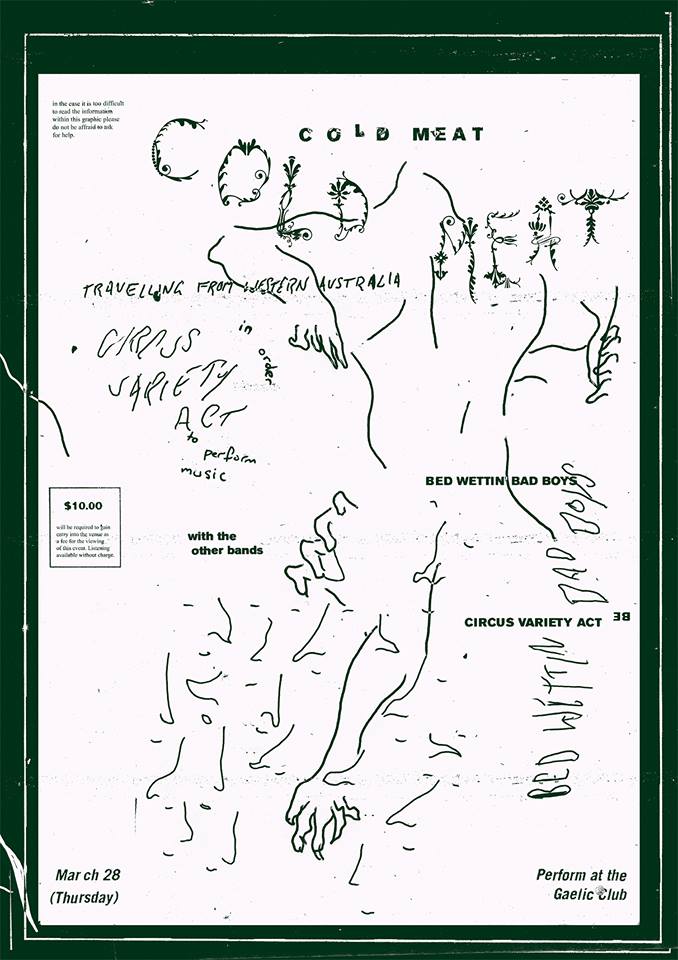 in the case it is too difficult
to read the information
within this graphic please
do not be affraid to ask
for help.
COLD MEAT
COLD
MEAT
TRAVELLING FROM WESTERN AUSTRALIA
in
order
VARIETY
ACT
to
perform
music
$10.00
will be required to gain
entry into the venue as
a fee for the viewing
of this event. Listening
available without charge.
with the
other bands
BED WETTIN BAD BOYS
CIRCUS VARIETY ACT
BE
BED WETTIN BAD BOYS
March 28
(Thursday)
Perform at the
Gaelic Club